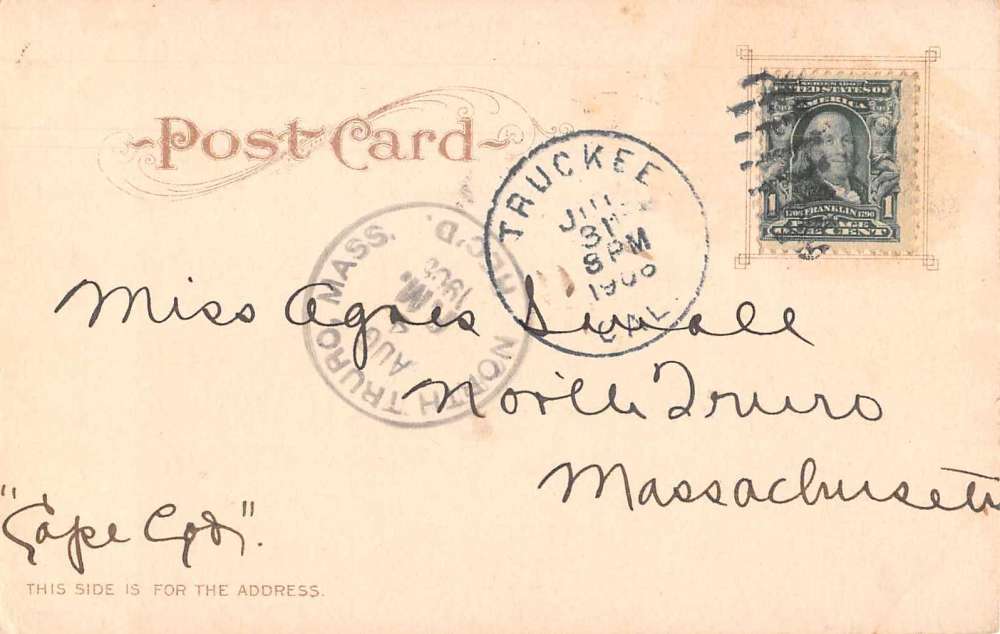 Post Card
SERIES 1902
UNITED STATES OF
AMERICA
1 1
1706 FRANKLIN 1790
POSTAGE
ONE CENT
TRUCKEE
JUL
31
8 PM
1906
CAL.
NORTH TRURO, MASS.
REC'D.
AUG
1906
Miss Agnes Small
North Truro
Massachusetts
"Cape Cod".
THIS SIDE IS FOR THE ADDRESS.